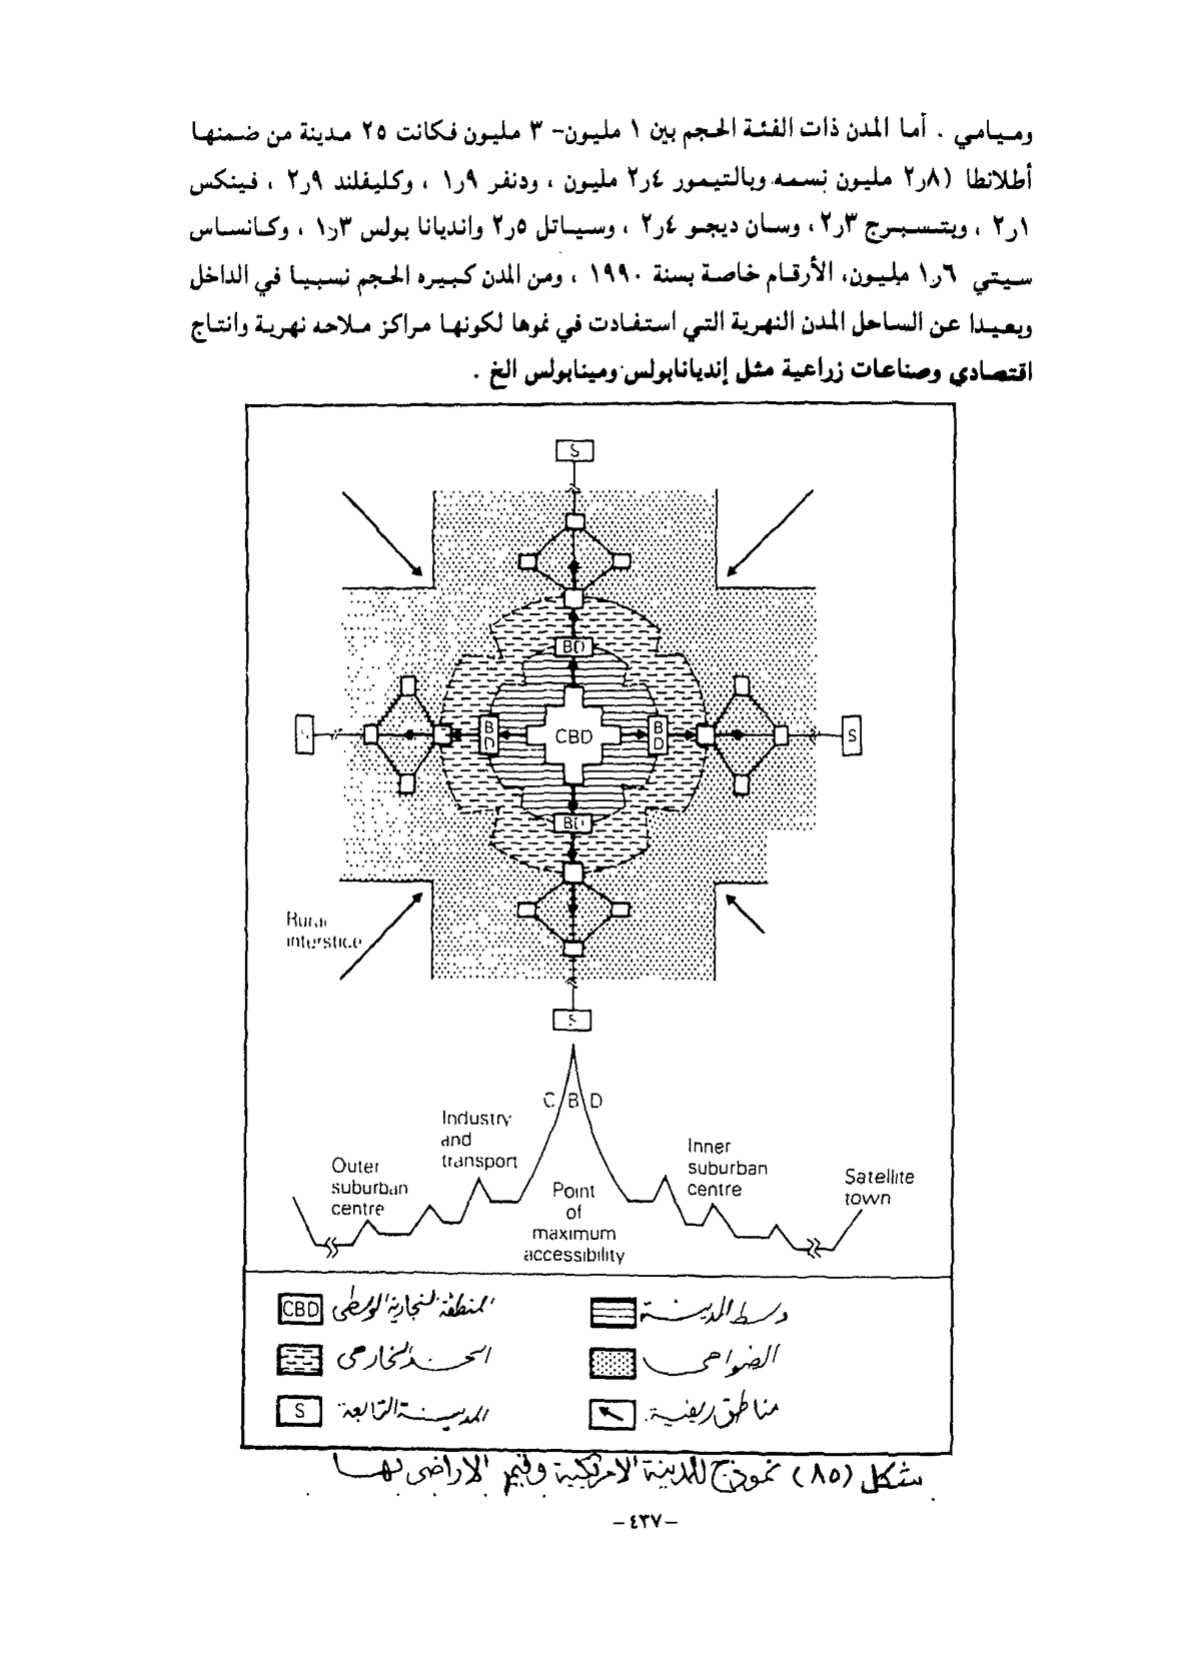 وميامي . أما المدن ذات الفئة الحجم بين ١ مليون- ٣ مليون فكانت ٢٥ مدينة من ضمنها
أطلانطا (٢٫٨ مليون نسمه وبالتيمور ٢٫٤ مليون ، ودنفر ١٫٩ ، وكليفلند ٢٫٩ ، فينكس
٢٫١ ، وبتسبرج ٢٫٣ ، وسان ديجو ٢٫٤ ، وسياتل ٢٫٥ وانديانا بولس ١٫٣ ، وكانساس
سيتي ١٫٦ مليون، الأرقام خاصة بسنة ١٩٩٠ ، ومن المدن كبيره الحجم نسبيا في الداخل
وبعيدا عن الساحل المدن النهرية التي استفادت في نموها لكونها مراكز ملاحه نهرية وانتاج
اقتصادي وصناعات زراعية مثل إنديانابولس ومينابولس الخ .
S
BD
BD
CBD
BD
S
BD
Rural
interstice
S
C B D
Industry
and
transport
Outer
suburban
centre
Point
of
maximum
accessibility
Inner
suburban
centre
Satellite
town
CBD المنطقة التجارية الوسطى
وسط المدينة
الضواحى
S المدينة التابعة
مناطق ريفية
شكل (٨٥) نموذج للمدينة الامريكية وقيم الاراضى بها
-٤٣٧-